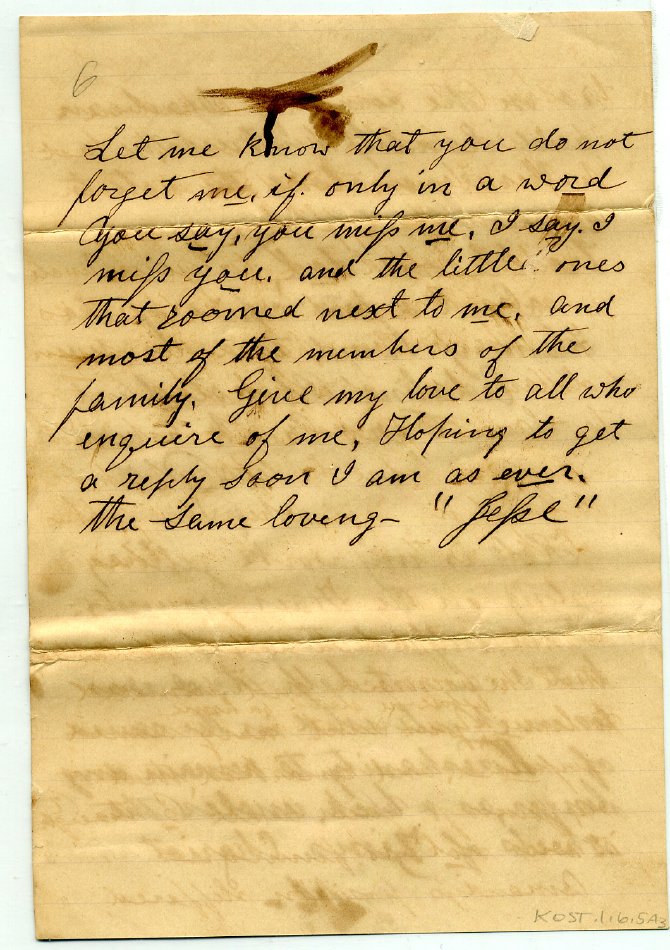 6
Let me know that you do not
forget me, if. only in a word
you say, you miss me, I say. I
miss you. and the little ones
that roomed next to me, and
most of the members of the
family. Give my love to all who
enquire of me, Hoping to get
a reply soon I am as ever.
the same loving - "Jesse"
KOST.1.6.5A3